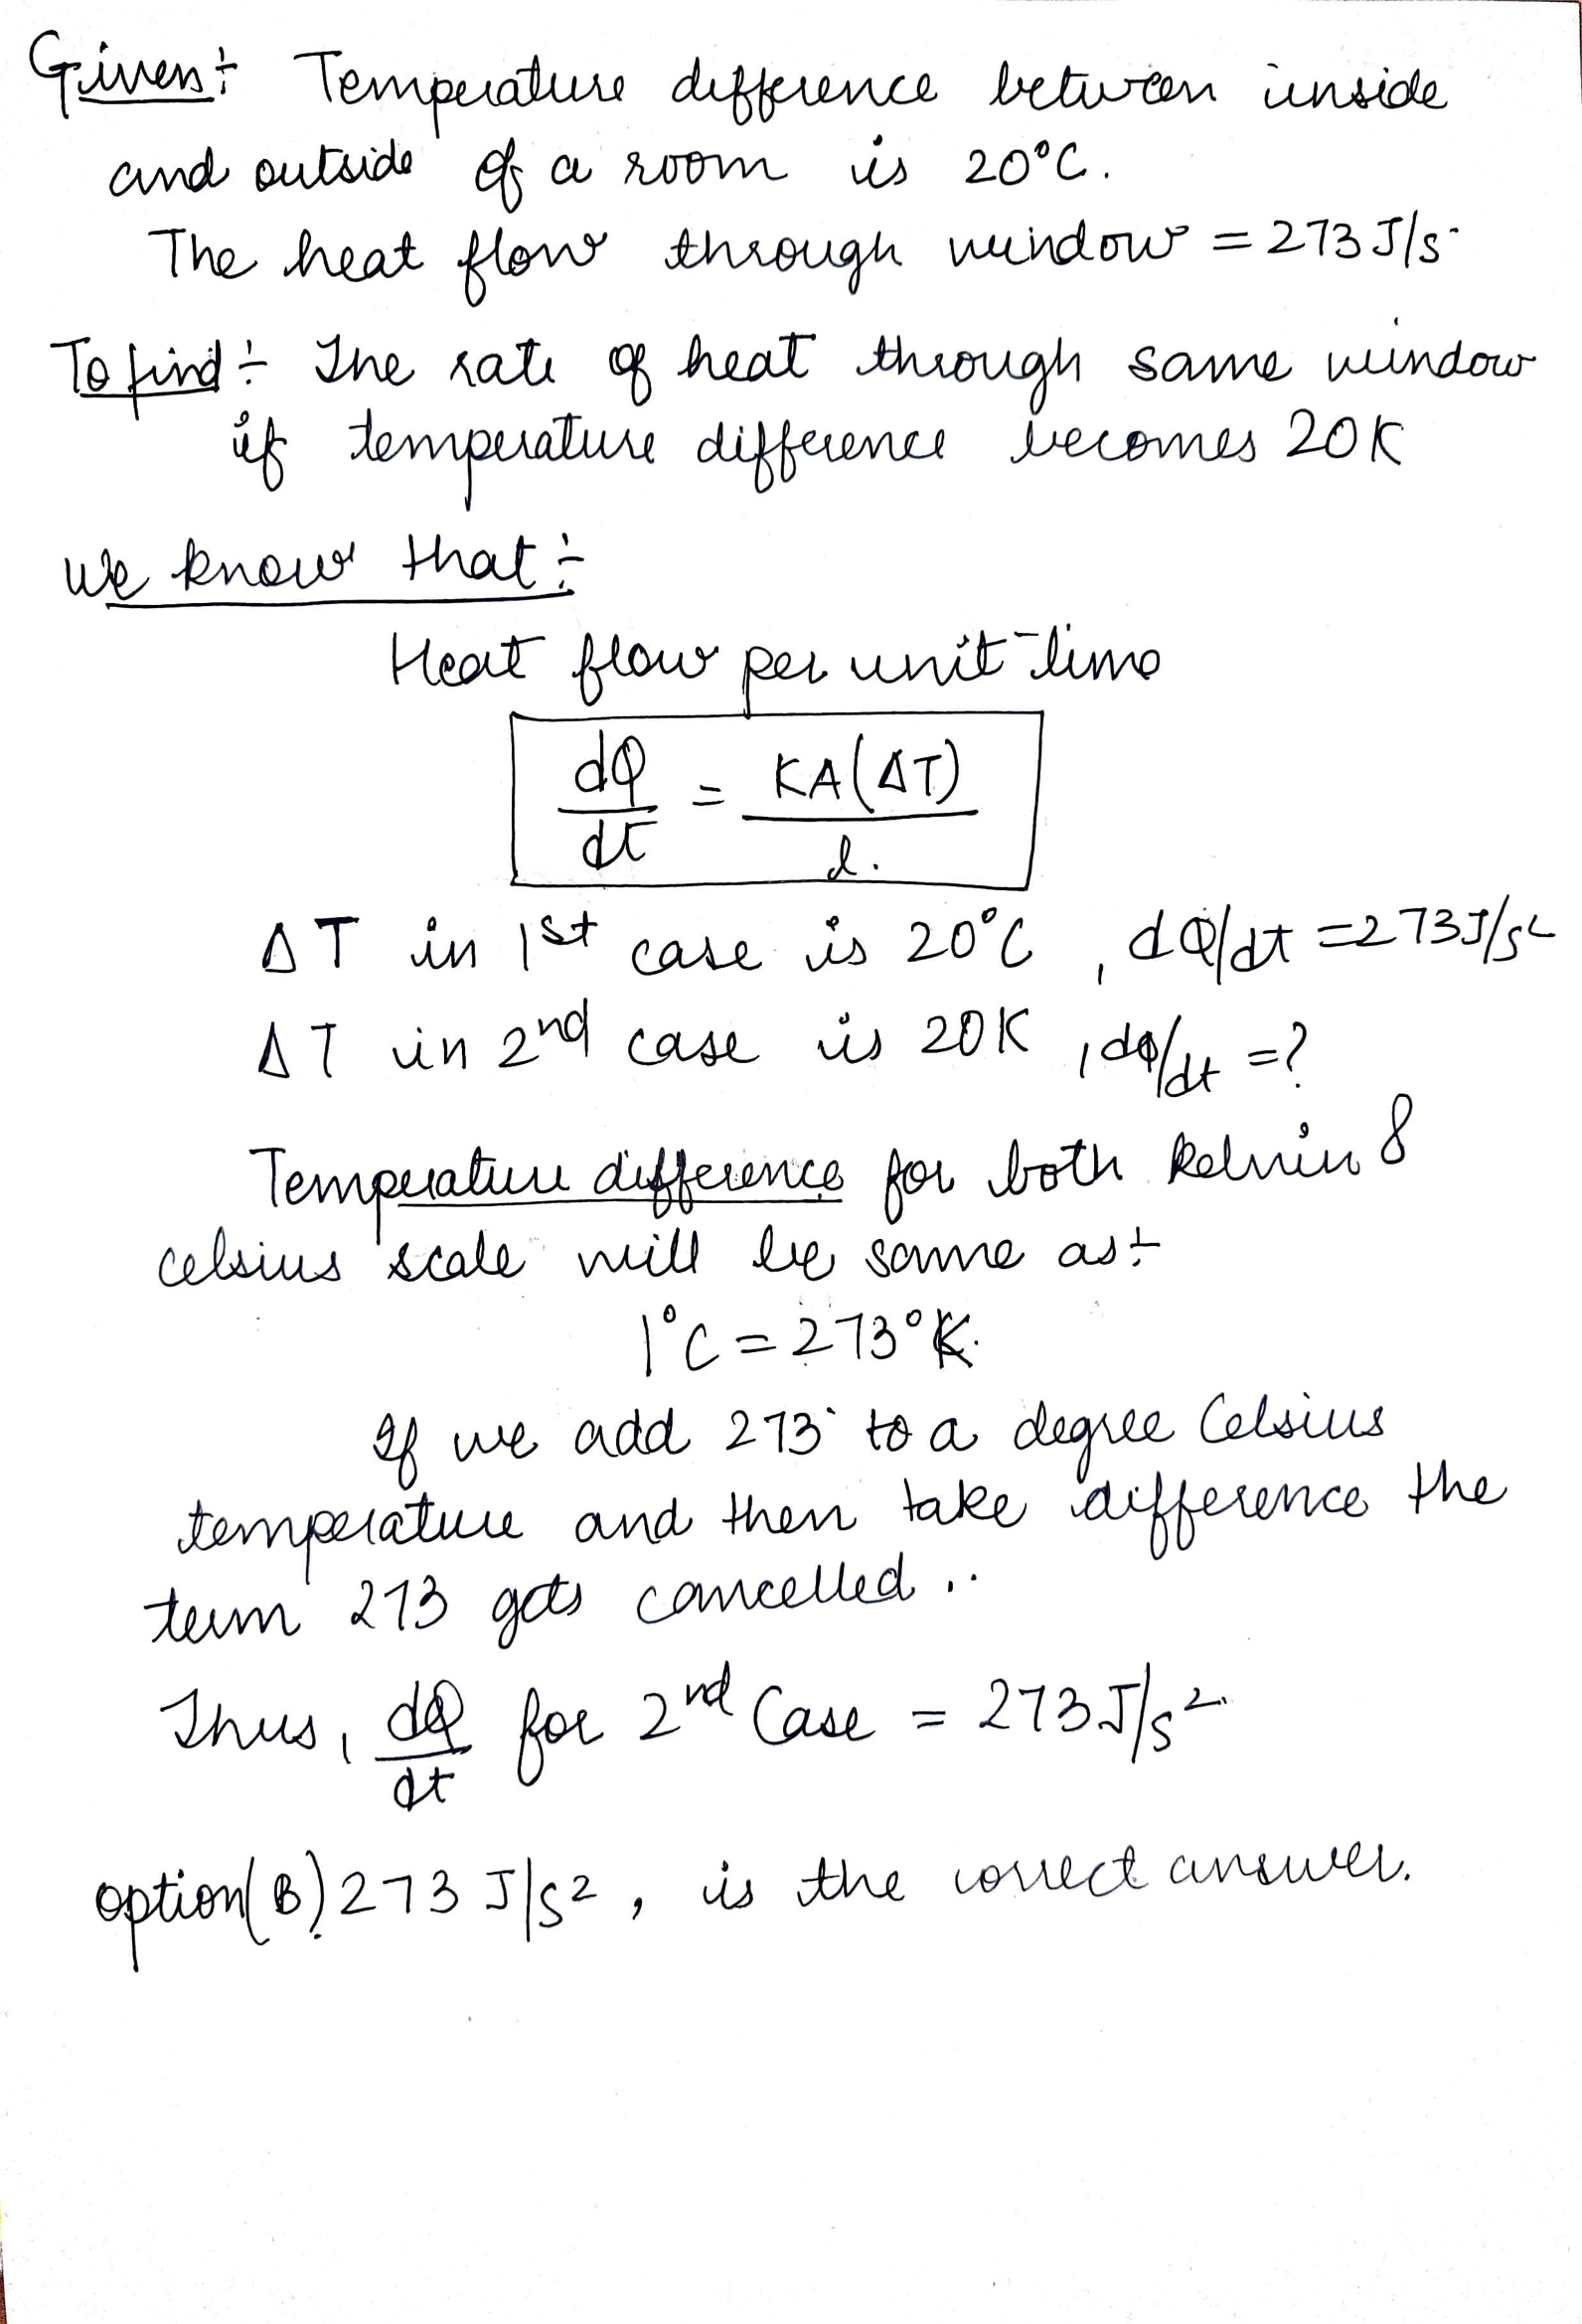 Given:- Temperature difference between inside
and outside of a room is 20°C.
The heat flow through window = 273 J/s
To find:- The rate of heat through same window
if temperature difference becomes 20K
We know that:-
Heat flow per unit time
dQ/dt = KA(ΔT)/l.
ΔT in 1st case is 20°C, dQ/dt = 273 J/s²
ΔT in 2nd case is 20K, dQ/dt = ?
Temperature difference for both Kelvin &
celsius scale will be same as:-
1°C = 273°K.
If we add 273 to a degree Celsius
temperature and then take difference the
term 273 gets cancelled..
Thus, dQ/dt for 2nd Case = 273 J/s².
option(B) 273 J/s², is the correct answer.